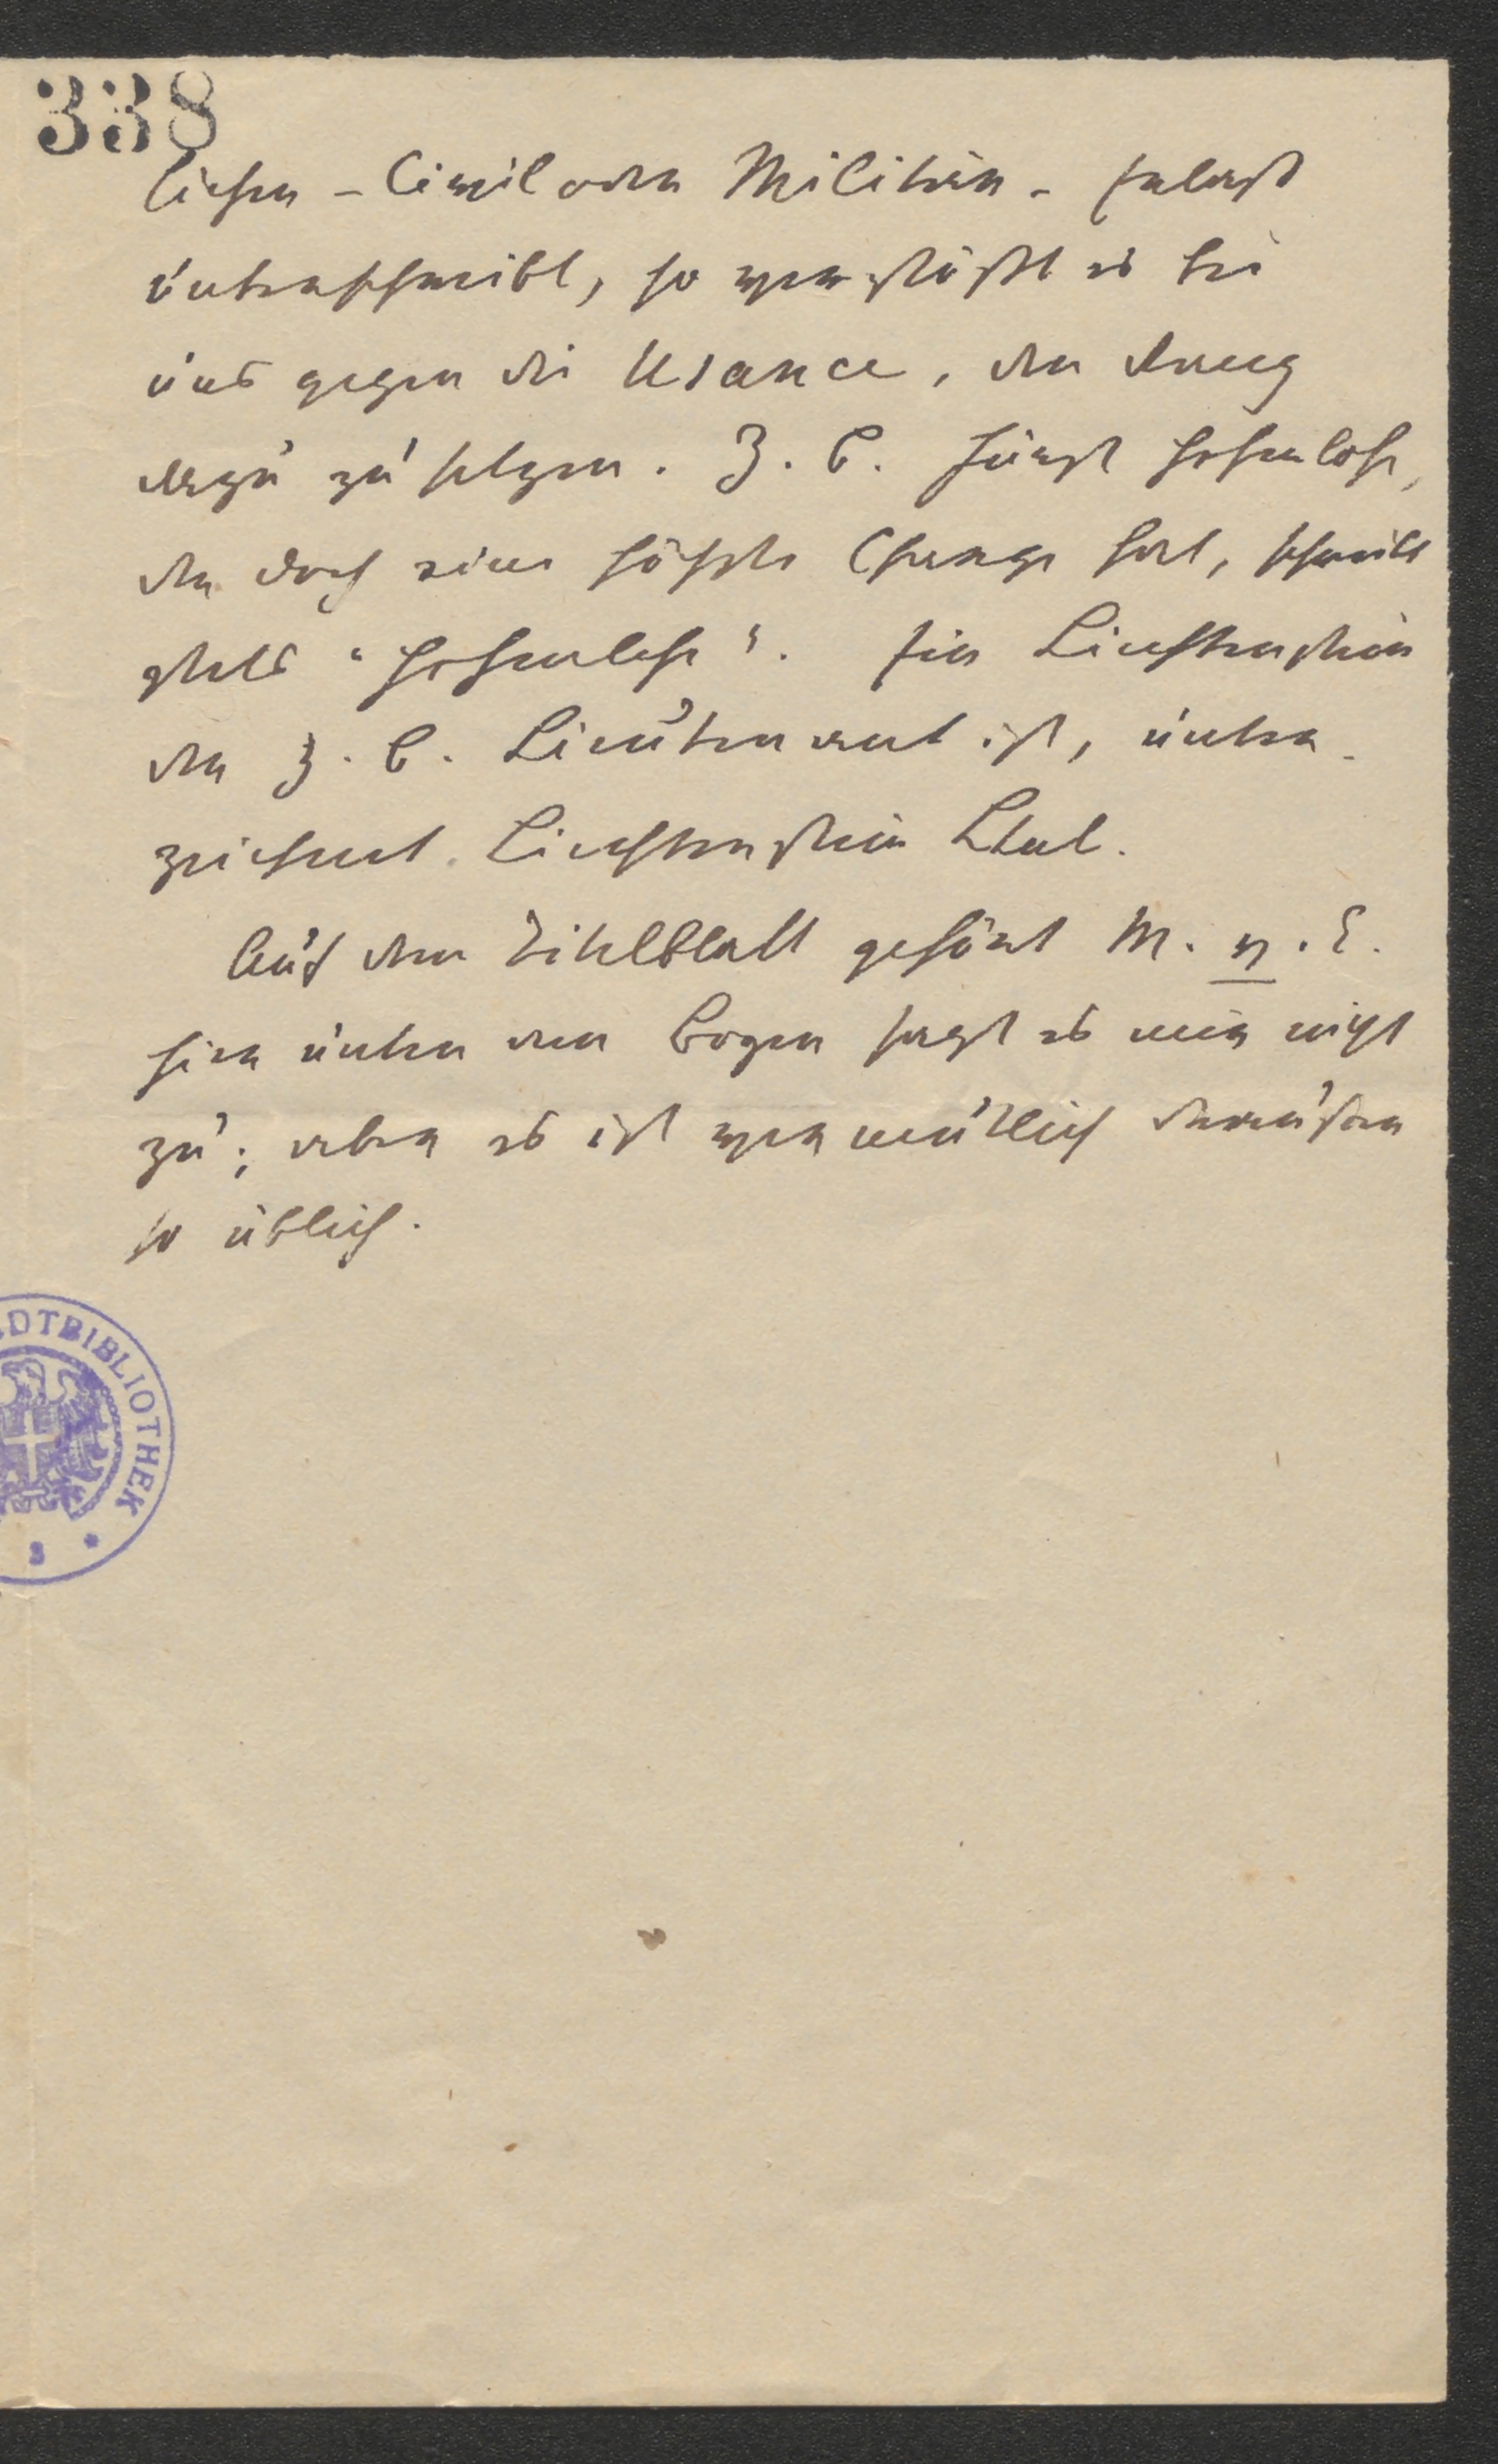 338
lichen – Civil oder Militär – Erlass
unterschreibt, so verstößt es bei
uns gegen die Usance, den Rang
dazu zu setzen. Z. B. Fürst Hohenlohe,
der doch eine höchste Charge hat, schreibt
stets „Hohenlohe“. Ein Liechtenstein
der z. B. Lieutenant ist, unter-
zeichnet Liechtenstein Ltnt.
Auf dem Titelblatt gehört M. v. E.
hier unter den Bogen sagt es mir nicht
zu; aber es ist vermutlich draußen
so üblich.
DTBIBLIOTHEK